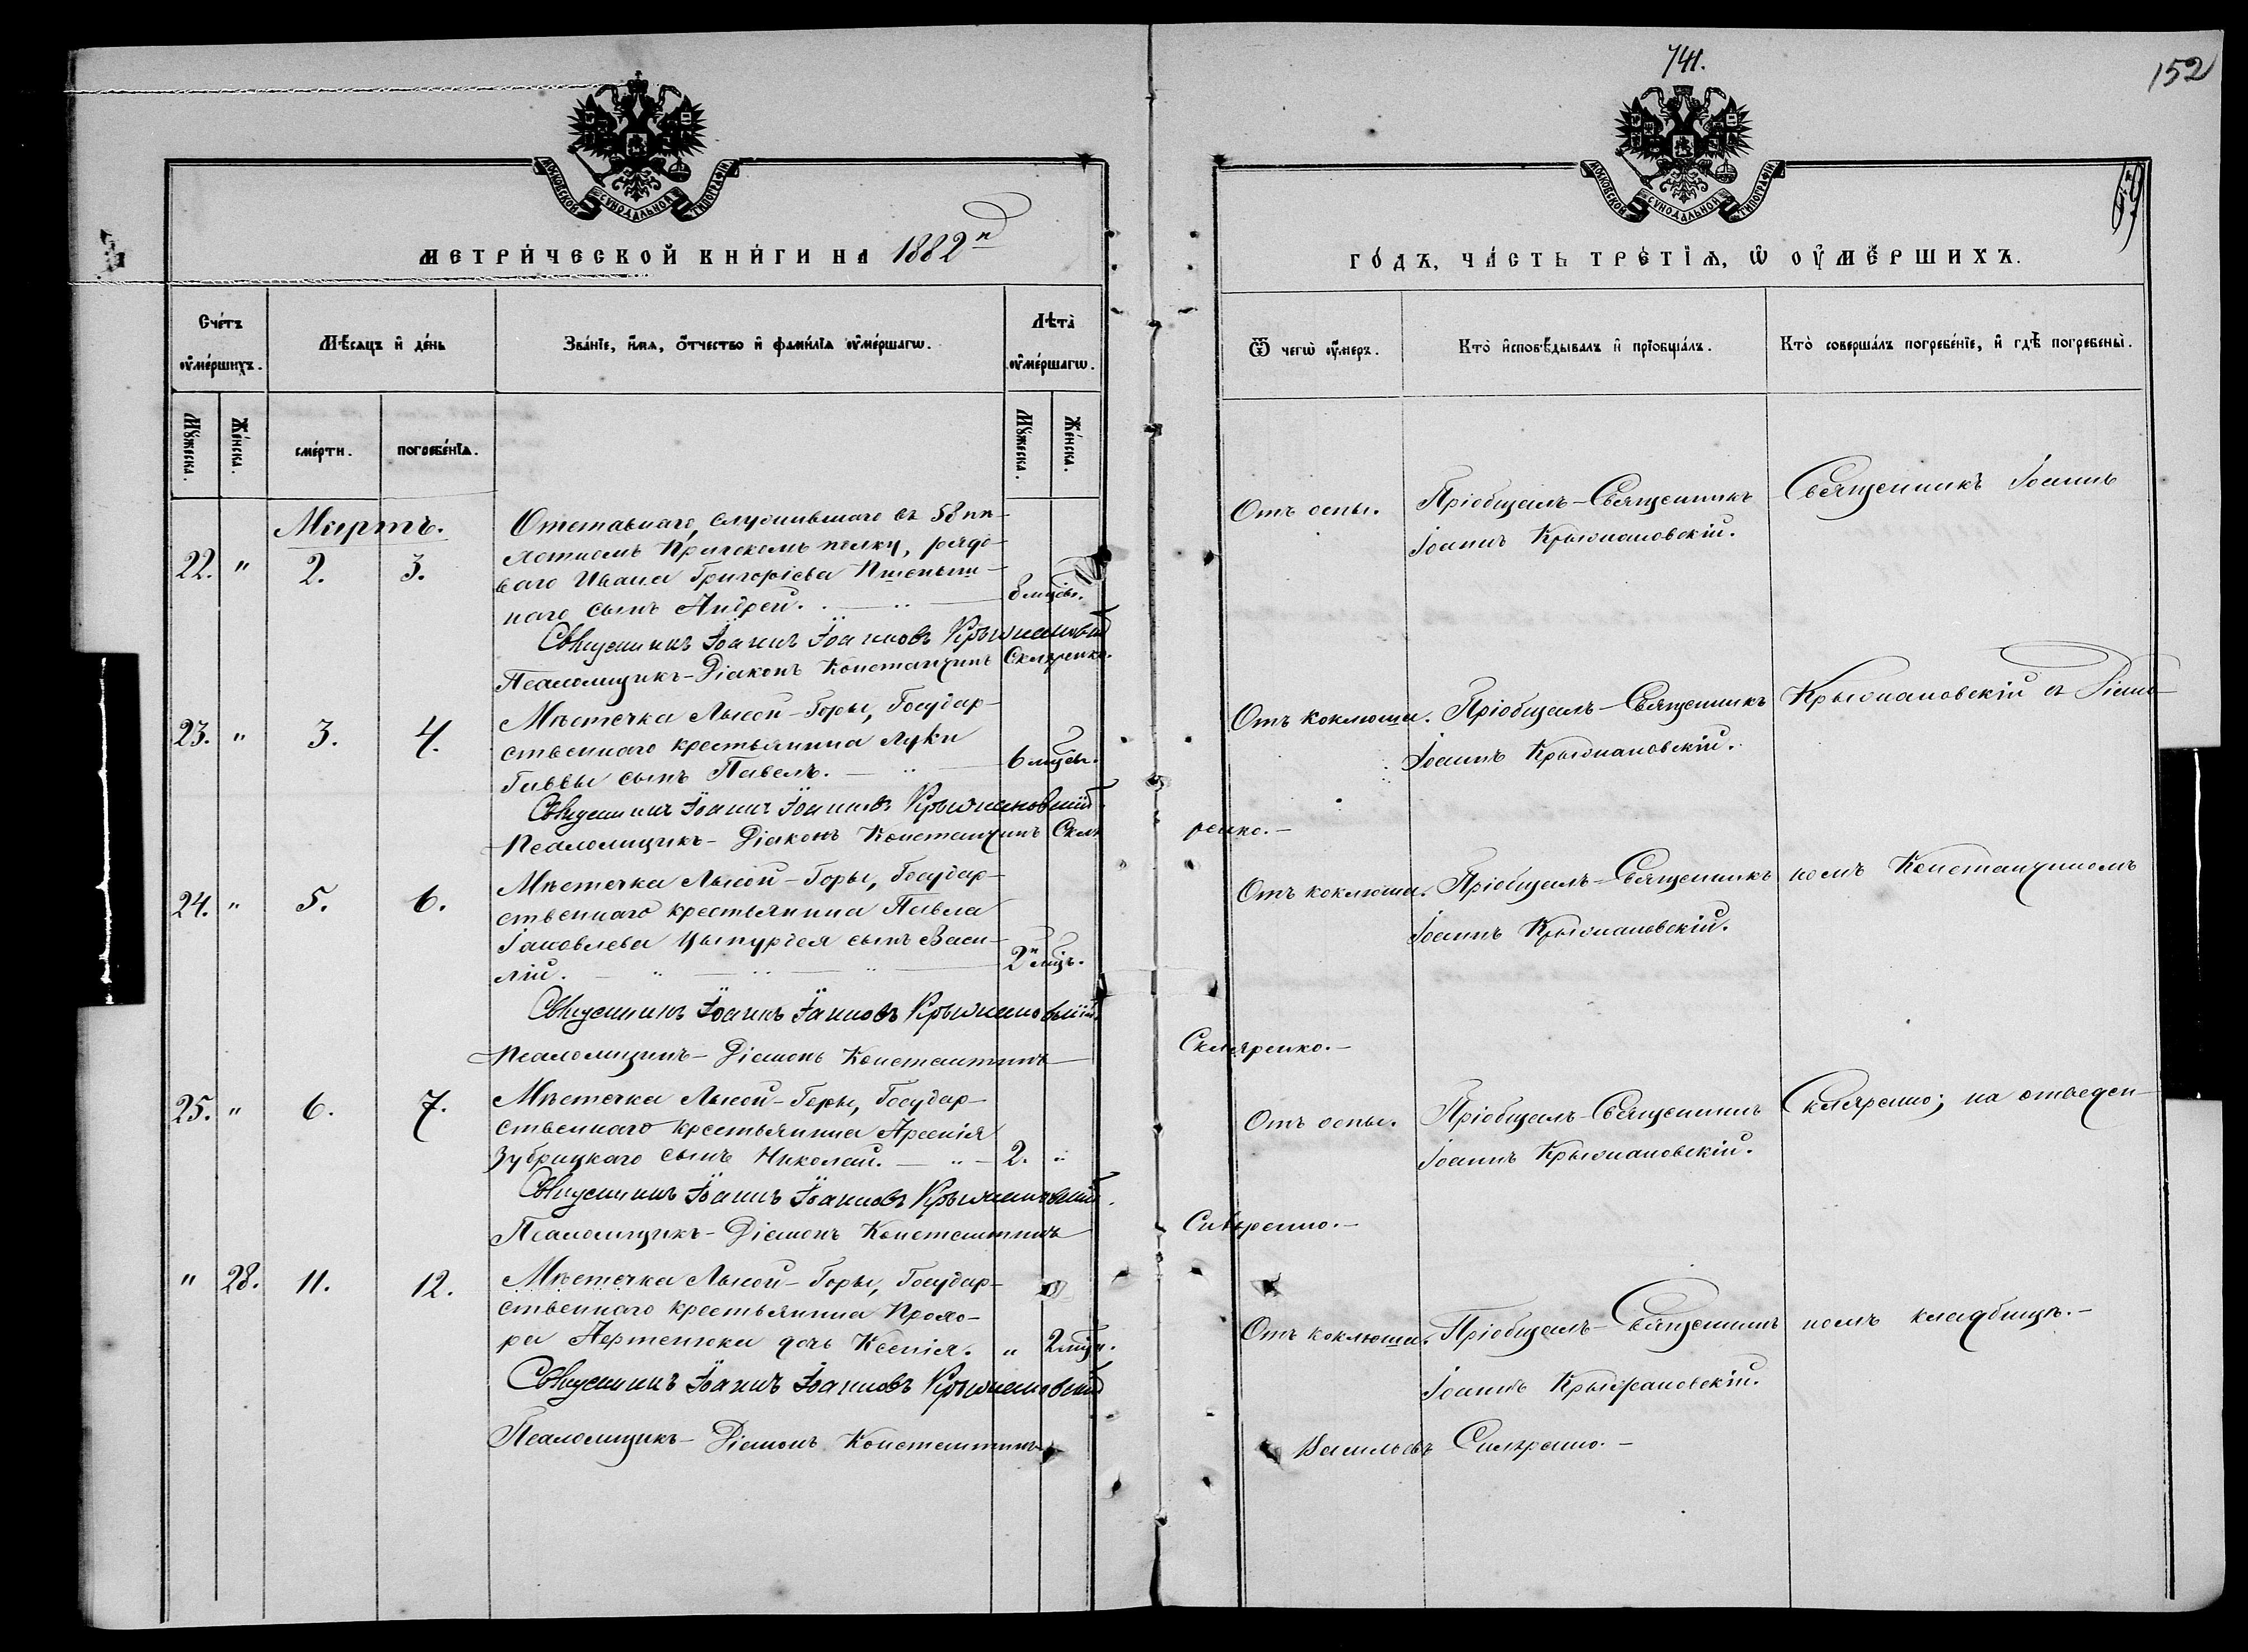 741.
152
МОСКОВСКОЙ СѴНОДАЛЬНОЙ ТИПОГРАФІИ
МОСКОВСКОЙ СѴНОДАЛЬНОЙ ТИПОГРАФІИ
МЕТРИ́ЧЕСКОЙ КНИ́ГИ НА 1882й
ГО́ДЪ, ЧА́СТЬ ТРЕ́ТІѦ, Ѡ ОУМЕ́РШИХЪ.
Счетъ оумершихъ.
Мѣсяцъ и день
Званіе, имя, отчество и фамилія оумершагѡ.
Лѣта оумершагѡ.
Ѿ чегѡ оумеръ.
Кто исповѣдывалъ и пріобщалъ.
Кто совершалъ погребеніе, и гдѣ погребены.
Мужеска.
Женска.
смерти.
погребенія.
Мужеска.
Женска.
Мартъ.
22. " 2. 3.
Отставнаго, служившаго въ 58 пѣ-
хотномъ Прагскомъ полку, рядо-
ваго Ивана Григоріева
наго сынъ Андрей. 8 мцвъ.
Отъ оспы.
Пріобщалъ-Священникъ
Іоаннъ Крыжановскій.
Священникъ Іоаннъ
Священникъ Іоаннъ Іоанновъ Крыжановскій
Псаломщикъ-Діаконъ Константинъ Скляренко.
23. " 3. 4.
Мѣстечка Лысой-Горы, Государ-
ственнаго крестьянина Луки
Саввы сынъ Павелъ. 6 мцвъ.
Отъ коклюша.
Пріобщалъ-Священникъ
Іоаннъ Крыжановскій.
Крыжановскій съ Діако-
Священникъ Іоаннъ Іоанновъ Крыжановскій
Псаломщикъ-Діаконъ Константинъ Скля
ренко.-
24. " 5. 6.
Мѣстечка Лысой-Горы, Государ-
ственнаго крестьянина Павла
Іаковлева Цыпурдея сынъ Васи-
лій. 2 мцъ.
Отъ коклюша.
Пріобщалъ-Священникъ
Іоаннъ Крыжановскій.
номъ Константиномъ
Священникъ Іоаннъ Іоанновъ Крыжановскій.
Псаломщикъ-Діаконъ Константинъ
Скляренко.-
25. " 6. 7.
Мѣстечка Лысой-Горы, Государ-
ственнаго крестьянина Арсенія
Зубрицкаго сынъ Николай. 2. "
Отъ оспы.
Пріобщалъ-Священникъ
Іоаннъ Крыжановскій.
Скляренко; на отведен-
Священникъ Іоаннъ Іоанновъ Крыжановскій.
Псаломщикъ-Діаконъ Константинъ
Скляренко.-
" 28. 11. 12.
Мѣстечка Лысой-Горы, Государ-
ственнаго крестьянина Прохо-
ра дочь Ксенія. "
Отъ коклюша.
Пріобщалъ-Священникъ
Іоаннъ Крыжановскій.
номъ кладбищѣ.-
Священникъ Іоаннъ Іоанновъ Крыжановскій
Псаломщикъ-Діаконъ Константинъ
Васильевъ Скляренко.-